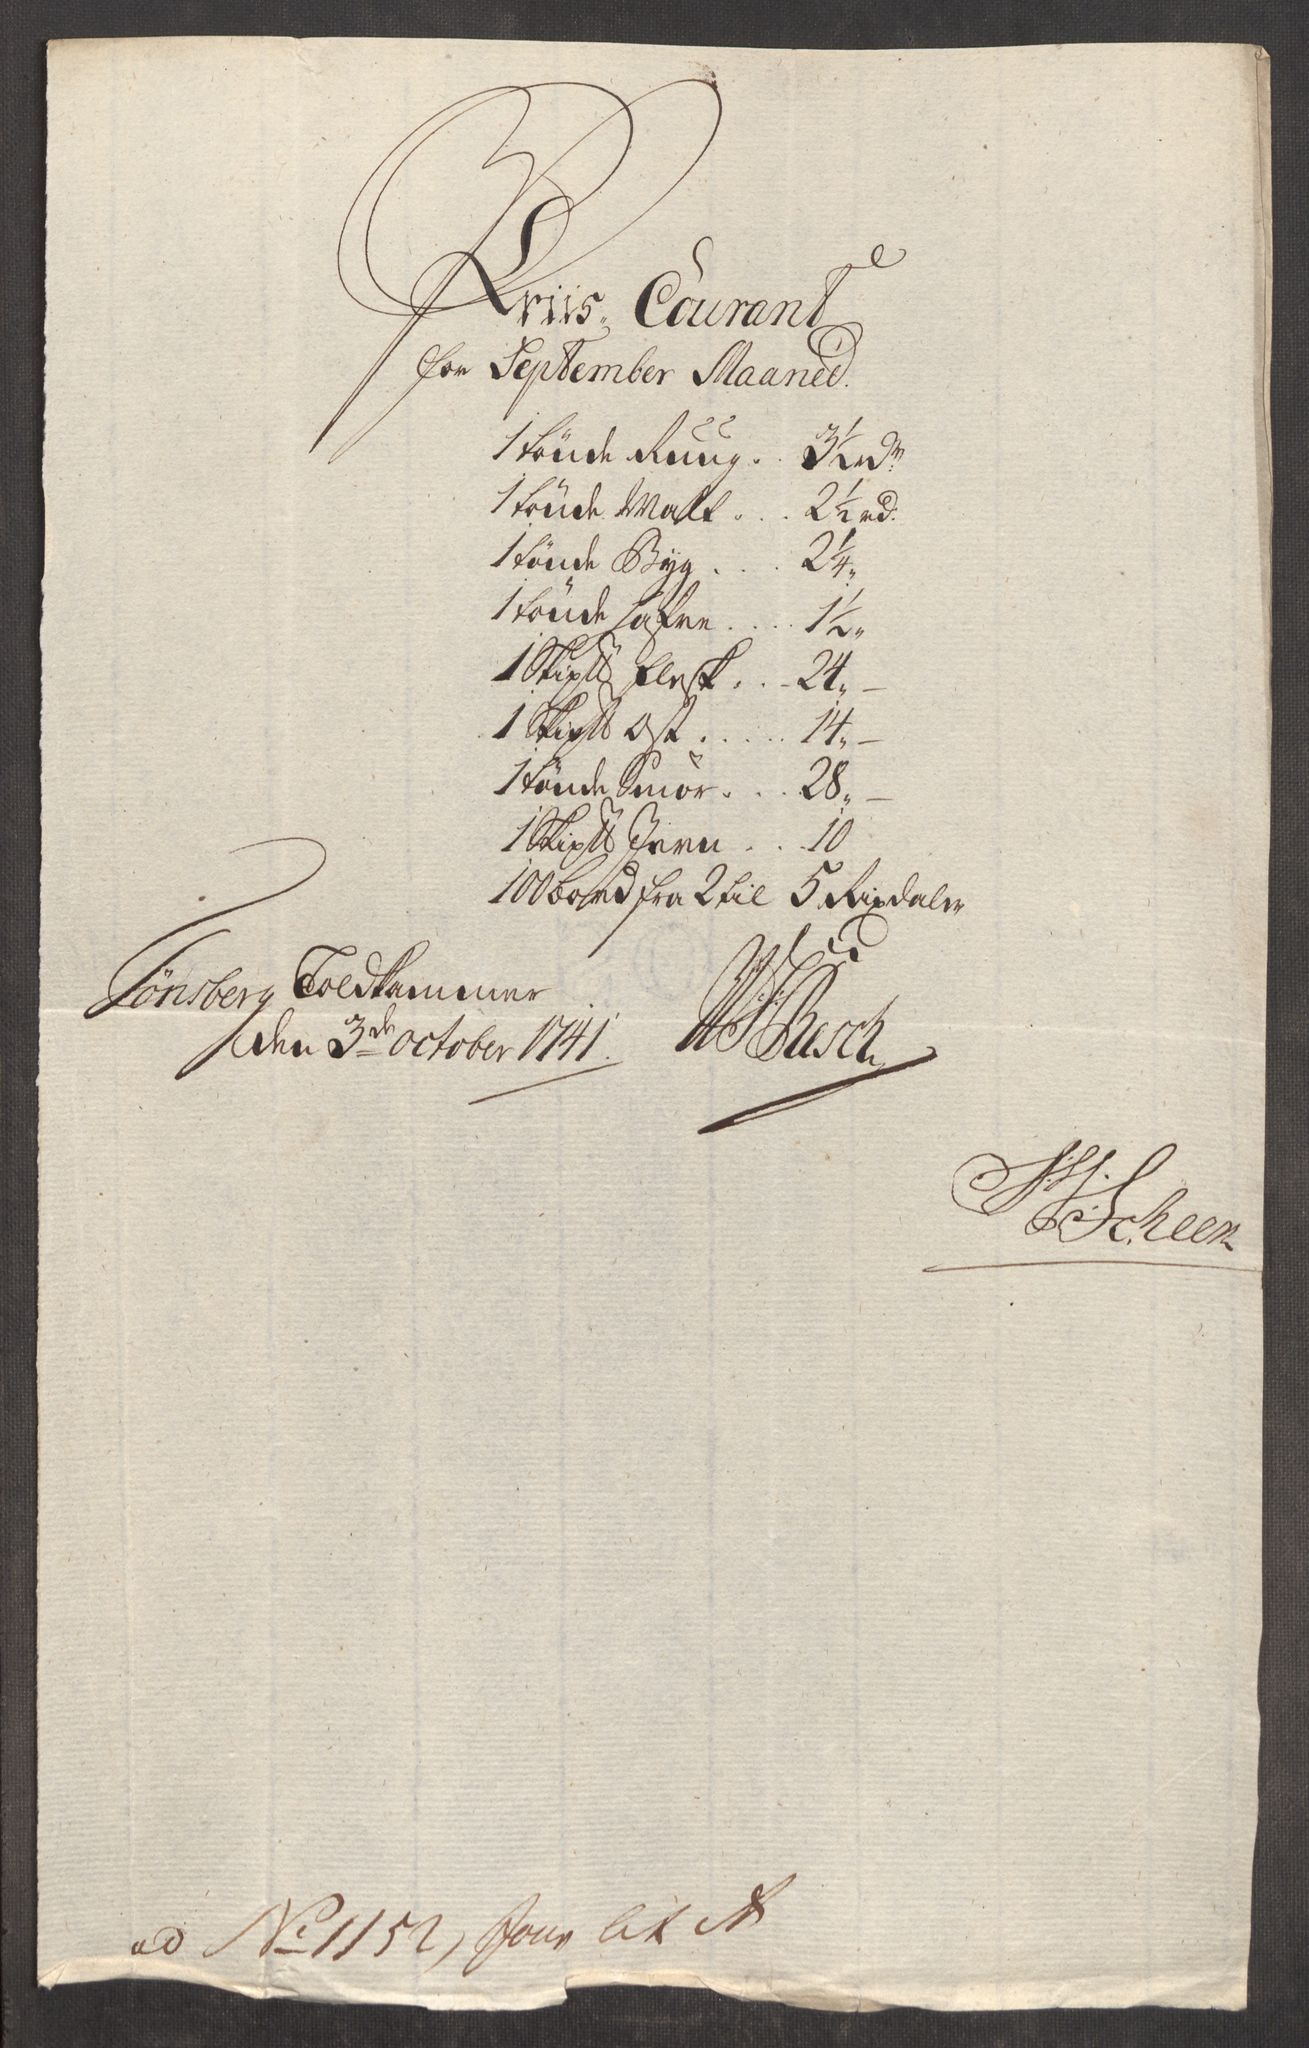 Priis Courant
for September Maaned.
1 tönde Ruug . . 3½ rdr.
1 tönde Malt . . . 2½ rd.
1 tönde Byg . . . . 2¼ „
1 tönde hafre . . . . 1½ „
1 Skip℔ flesk . . - 24 „ -
1 Skip℔ Ost . . . . . 14 „ -
1 tönde Smör . . . 28 „ -
1 Skip℔ Jern . . . 10
100 bord fra 2 til 5 Rixdaler
Tönsberg Toldkammer
den 3de October 1741.
Resch
Scheen
ad No 1152, Jour lit A